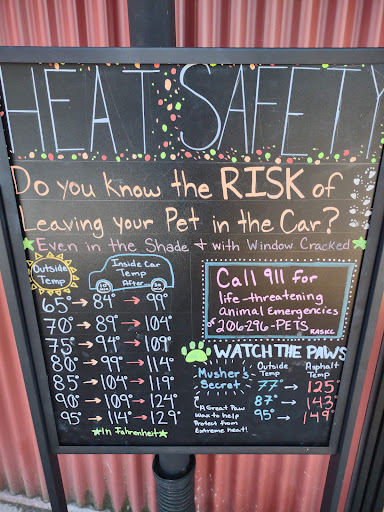 HEAT SAFETY
Do you know the RISK of
Leaving your Pet in the Car?
Even in the Shade + with Window Cracked
Outside Temp
Inside Car
Temp
After
10 30
65° → 84° → 99°
70° → 89° → 104°
75° → 94° → 109°
80° → 99° → 114°
85° → 104° → 119°
90° → 109° → 124°
95° → 114° → 129°
In Fahrenheit
Call 911 for
life-threatening
animal Emergencies
or 206-296-PETS RASKC
WATCH THE PAWS
Musher's
Secret
A Great Paw
Wax to help
Protect from
Extreme heat!
Outside Temp Asphalt Temp
77° → 125°
87° → 143°
95° → 149°